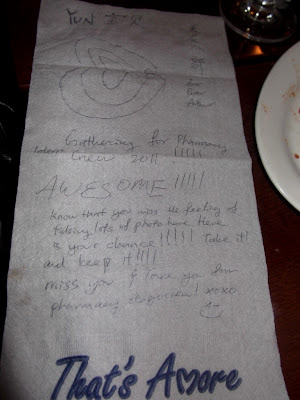 YUN
Gathering for Pharmacy
Crew 2011 !!!!!
AWESOME!!!!!
know that you miss the feeling of
taking lots of photo here. Here
is your chance!!!!! Take it!
and keep it!!!!
miss you & love you
pharmacy xoxo
That's Amore